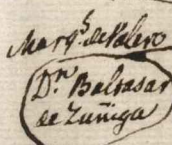 Marqs. de Valero
Dn. Baltasar
de Zuñiga